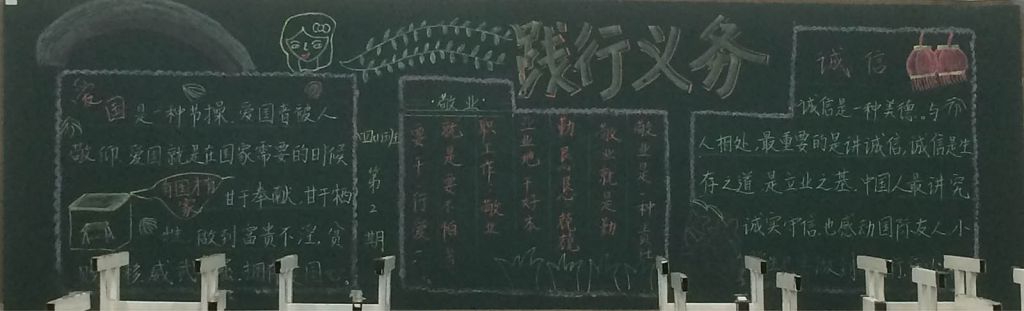 践行义务
爱国是一种节操,爱国者被人
敬仰,爱国就是在国家需要的时候
有国才有
家
甘于奉献,甘于牺
牲,做到富贵不淫,贫
第2期
·敬业·
敬业是一种
敬业就是勤
勤恳恳,兢兢
业业地干好本
职工作。敬业
就是要不怕
要干一行爱一
诚信
诚信是一种美德。与
人相处,最重要的是讲诚信,诚信是生
存之道,是立业之基。中国人最讲究
诚实守信,也感动国际友人,小